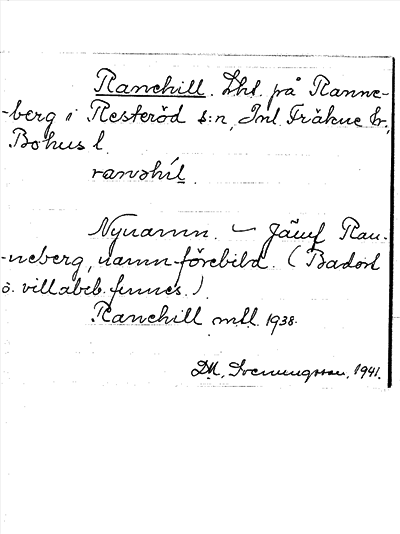 Ranehill. Lhl. på Ranne-
-berg i Resteröd s:n, Inl. Fräkne hd.,
Bohus l.
ranəhíl.
Nynamn. – Jämf Ran-
-neberg, namnförebild. (Badort
o. villabeb. finnes.)
Ranehill msll. 1938.
1941.